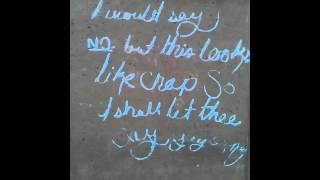 I would say
NO. but this looks
like chap So
I shall let thee